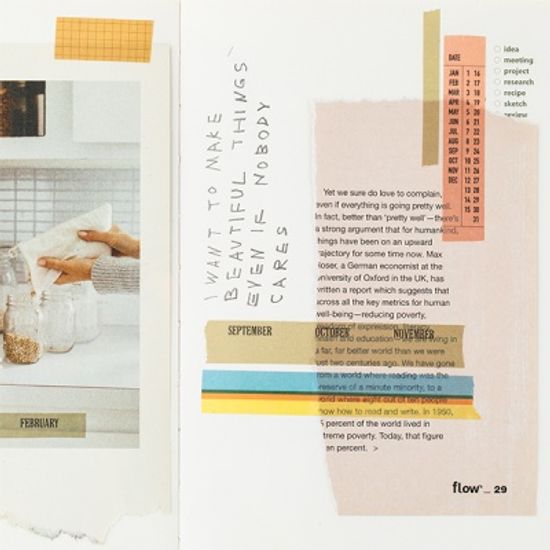 FEBRUARY
I WANT TO MAKE
BEAUTIFUL THINGS
EVEN IF NOBODY
CARES
DATE
JAN 1 16
FEB 2 17
MAR 3 18
APR 4 19
MAY 5 20
JUN 6 21
JUL 7 22
AUG 8 23
SEP 9 24
OCT 10 25
NOV 11 26
DEC 12 27
13 28
14 29
15 30
31
idea
meeting
project
research
recipe
sketch
review
Yet we sure do love to complain,
even if everything is going pretty well.
In fact, better than 'pretty well'—there's
a strong argument that for humankind,
things have been on an upward
trajectory for some time now. Max
Roser, a German economist at the
University of Oxford in the UK, has
written a report which suggests that
across all the key metrics for human
well-being—reducing poverty,
freedom of expression,
SEPTEMBER OCTOBER NOVEMBER
health and education—we are living in
a far, far better world than we were
just two centuries ago. We have gone
from a world where reading was the
preserve of a minute minority, to a
world where eight out of ten people
know how to read and write. In 1950,
5 percent of the world lived in
treme poverty. Today, that figure
en percent. >
flow_ 29